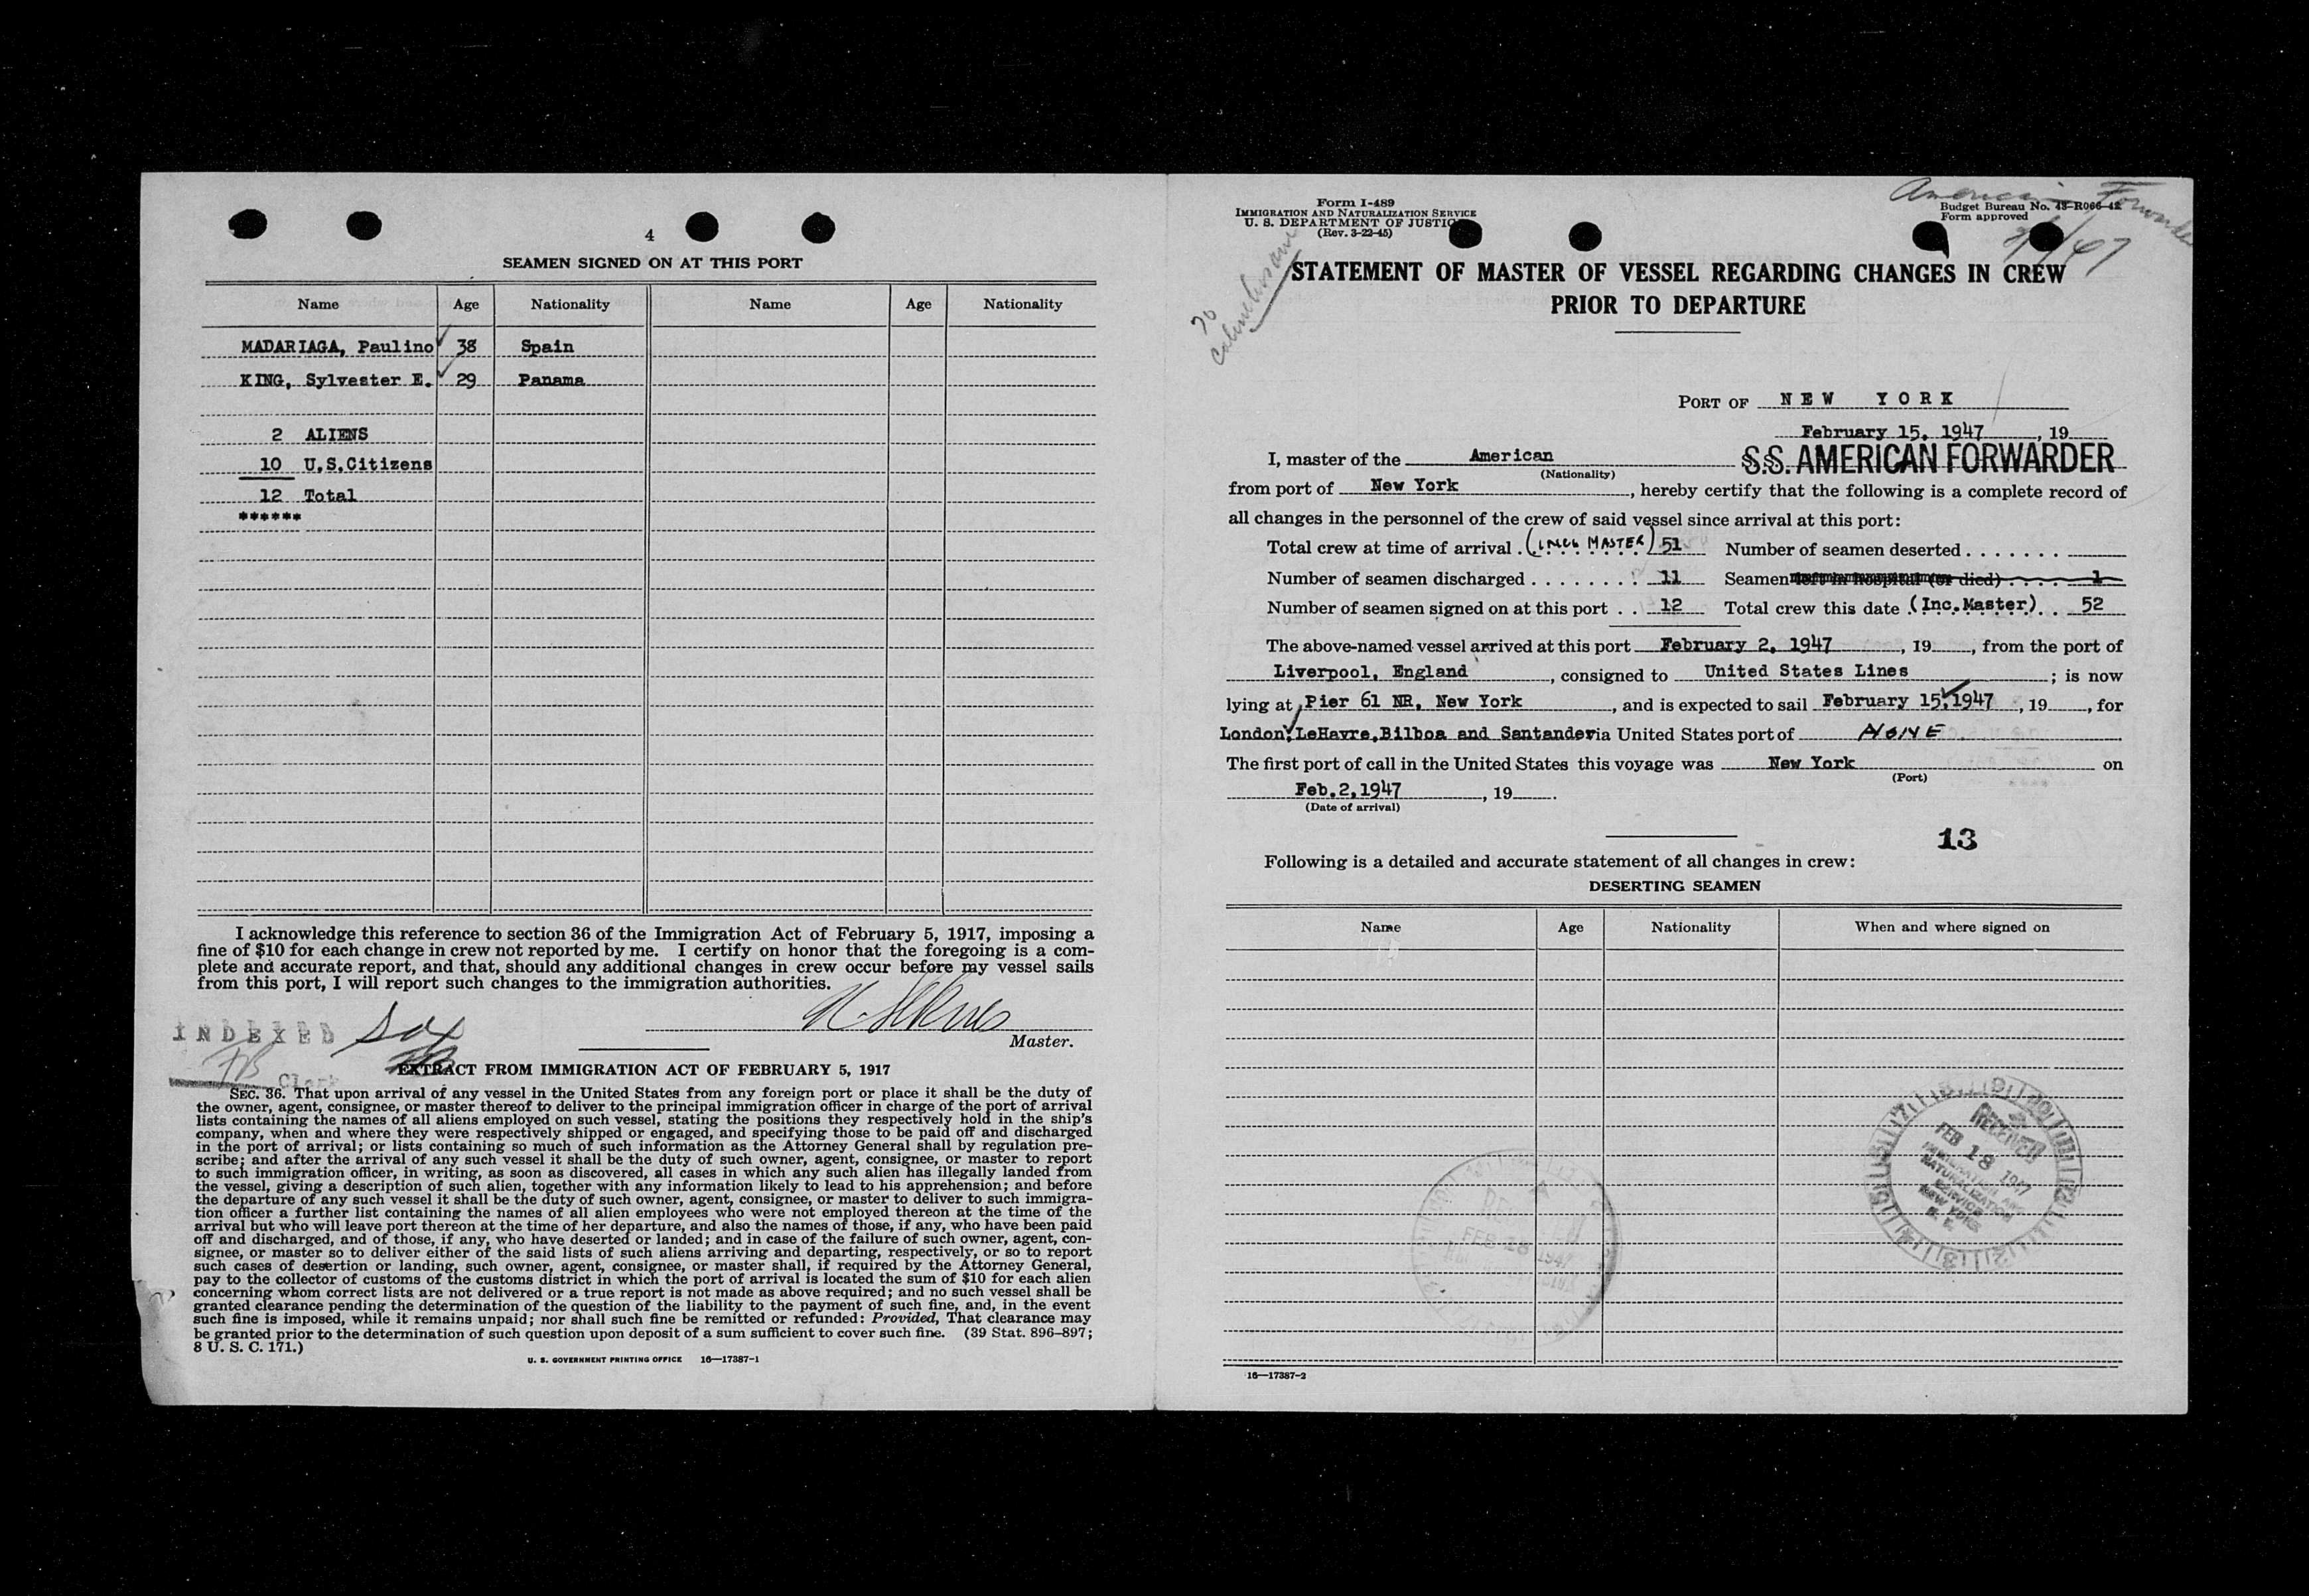 4
SEAMEN SIGNED ON AT THIS PORT
Name Age Nationality Name Age Nationality
MADARIAGA, Paulino 38 Spain
KING, Sylvester E. 29 Panama
2 ALIENS
10 U.S.Citizens
12 Total
******
I acknowledge this reference to section 36 of the Immigration Act of February 5, 1917, imposing a
fine of $10 for each change in crew not reported by me. I certify on honor that the foregoing is a com-
plete and accurate report, and that, should any additional changes in crew occur before my vessel sails
from this port, I will report such changes to the immigration authorities.
INDEXED
Master.
FB Clerk
EXTRACT FROM IMMIGRATION ACT OF FEBRUARY 5, 1917
SEC. 36. That upon arrival of any vessel in the United States from any foreign port or place it shall be the duty of
the owner, agent, consignee, or master thereof to deliver to the principal immigration officer in charge of the port of arrival
lists containing the names of all aliens employed on such vessel, stating the positions they respectively hold in the ship's
company, when and where they were respectively shipped or engaged, and specifying those to be paid off and discharged
in the port of arrival; or lists containing so much of such information as the Attorney General shall by regulation pre-
scribe; and after the arrival of any such vessel it shall be the duty of such owner, agent, consignee, or master to report
to such immigration officer, in writing, as soon as discovered, all cases in which any such alien has illegally landed from
the vessel, giving a description of such alien, together with any information likely to lead to his apprehension; and before
the departure of any such vessel it shall be the duty of such owner, agent, consignee, or master to deliver to such immigra-
tion officer a further list containing the names of all alien employees who were not employed thereon at the time of the
arrival but who will leave port thereon at the time of her departure, and also the names of those, if any, who have been paid
off and discharged, and of those, if any, who have deserted or landed; and in case of the failure of such owner, agent, con-
signee, or master so to deliver either of the said lists of such aliens arriving and departing, respectively, or so to report
such cases of desertion or landing, such owner, agent, consignee, or master shall, if required by the Attorney General,
pay to the collector of customs of the customs district in which the port of arrival is located the sum of $10 for each alien
concerning whom correct lists are not delivered or a true report is not made as above required; and no such vessel shall be
granted clearance pending the determination of the question of the liability to the payment of such fine, and, in the event
such fine is imposed, while it remains unpaid; nor shall such fine be remitted or refunded: Provided, That clearance may
be granted prior to the determination of such question upon deposit of a sum sufficient to cover such fine. (39 Stat. 896–897;
8 U. S. C. 171.)
U. S. GOVERNMENT PRINTING OFFICE 16—17387-1
Form I-489
IMMIGRATION AND NATURALIZATION SERVICE
U. S. DEPARTMENT OF JUSTICE
(Rev. 3-22-45)
American Forwarder
Budget Bureau No. 43-R066-42
Form approved
STATEMENT OF MASTER OF VESSEL REGARDING CHANGES IN CREW
PRIOR TO DEPARTURE
PORT OF NEW YORK
February 15, 1947, 19
I, master of the American S.S. AMERICAN FORWARDER
(Nationality)
from port of New York, hereby certify that the following is a complete record of
all changes in the personnel of the crew of said vessel since arrival at this port:
Total crew at time of arrival (INCL MASTER) 51 Number of seamen deserted
Number of seamen discharged 11 Seamen left in hospital (or died) 1
Number of seamen signed on at this port 12 Total crew this date (Inc.Master) 52
The above-named vessel arrived at this port February 2, 1947, 19, from the port of
Liverpool, England, consigned to United States Lines; is now
lying at Pier 61 NR, New York, and is expected to sail February 15, 1947, 19, for
London, LeHavre, Bilboa and Santander via United States port of NONE
The first port of call in the United States this voyage was New York on
(Port)
Feb.2,1947, 19.
(Date of arrival)
13
Following is a detailed and accurate statement of all changes in crew:
DESERTING SEAMEN
Name Age Nationality When and where signed on
RECEIVED
FEB 18 1947
IMMIGRATION AND
NATURALIZATION
SERVICE
NEW YORK
N. Y.
RECEIVED
FEB 18 1947
16—17387-2